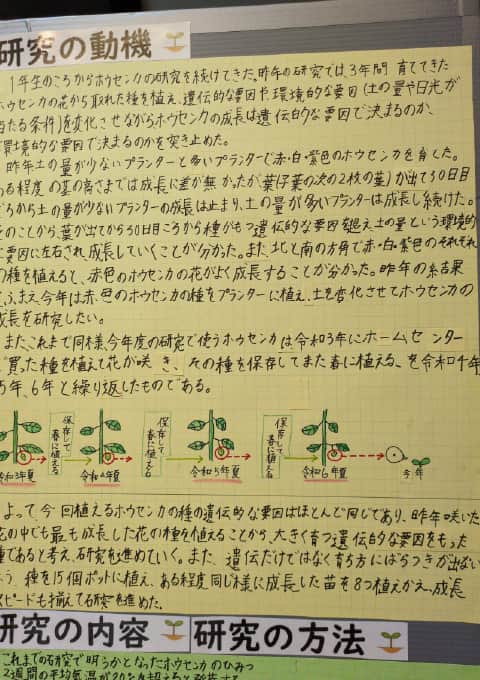 研究の動機
1年生のころからホウセンカの研究を続けてきた。昨年の研究では、3年間育ててきた
ホウセンカの花から取れた種を植え、遺伝的な要因や環境的な要因(土の量や日光が
当たる条件)を変化させながらホウセンカの成長は遺伝的な要因で決まるのか、
環境的な要因で決まるのかを突き止めた。
昨年土の量が少ないプランターと多いプランターで赤・白・紫色のホウセンカを育てた。
ある程度の茎の高さまでは成長に差が無かったが、葉(子葉の次の2枚の葉)が出て50日目
ごろから土の量が少ないプランターの成長は止まり、土の量が多いプランターは成長し続けた。
そのことから、葉が出てから50日ころから種がもつ遺伝的な要因を超え土の量という環境的
な要因に左右され成長していくことが分かった。また、北と南の方角で赤・白・紫色のそれぞれ
の種を植えると、赤色のホウセンカの花がよく成長することが分かった。昨年の結果
をふまえ、今年は赤色のホウセンカの種をプランターに植え、土を変化させてホウセンカの
成長を研究したい。
またこれまで同様、今年度の研究で使うホウセンカは令和3年にホームセンター
で買った種を植えて花が咲き、その種を保存してまた春に植える、を令和4年
5年、6年と繰り返したものである。
令和3年夏
保存して
春に植える
令和4年夏
保存して
春に植える
令和5年夏
保存して
春に植える
令和6年夏
今年
よって、今回植えるホウセンカの種の遺伝的な要因はほとんど同じであり、昨年咲いた
花の中でも最も成長した花の種を植えることから、大きく育つ遺伝的な要因をもった
種であると考え、研究を進めていく。また、遺伝だけではなく育ち方にばらつきが出ない
よう、種を15個ポットに植え、ある程度同じ様に成長した苗を8つ植えかえ、成長
スピードも揃えて研究を進めた。
研究の内容
研究の方法
これまでの研究で明らかとなったホウセンカのひみつ
2週間の平均気温が20℃を超えると発芽する